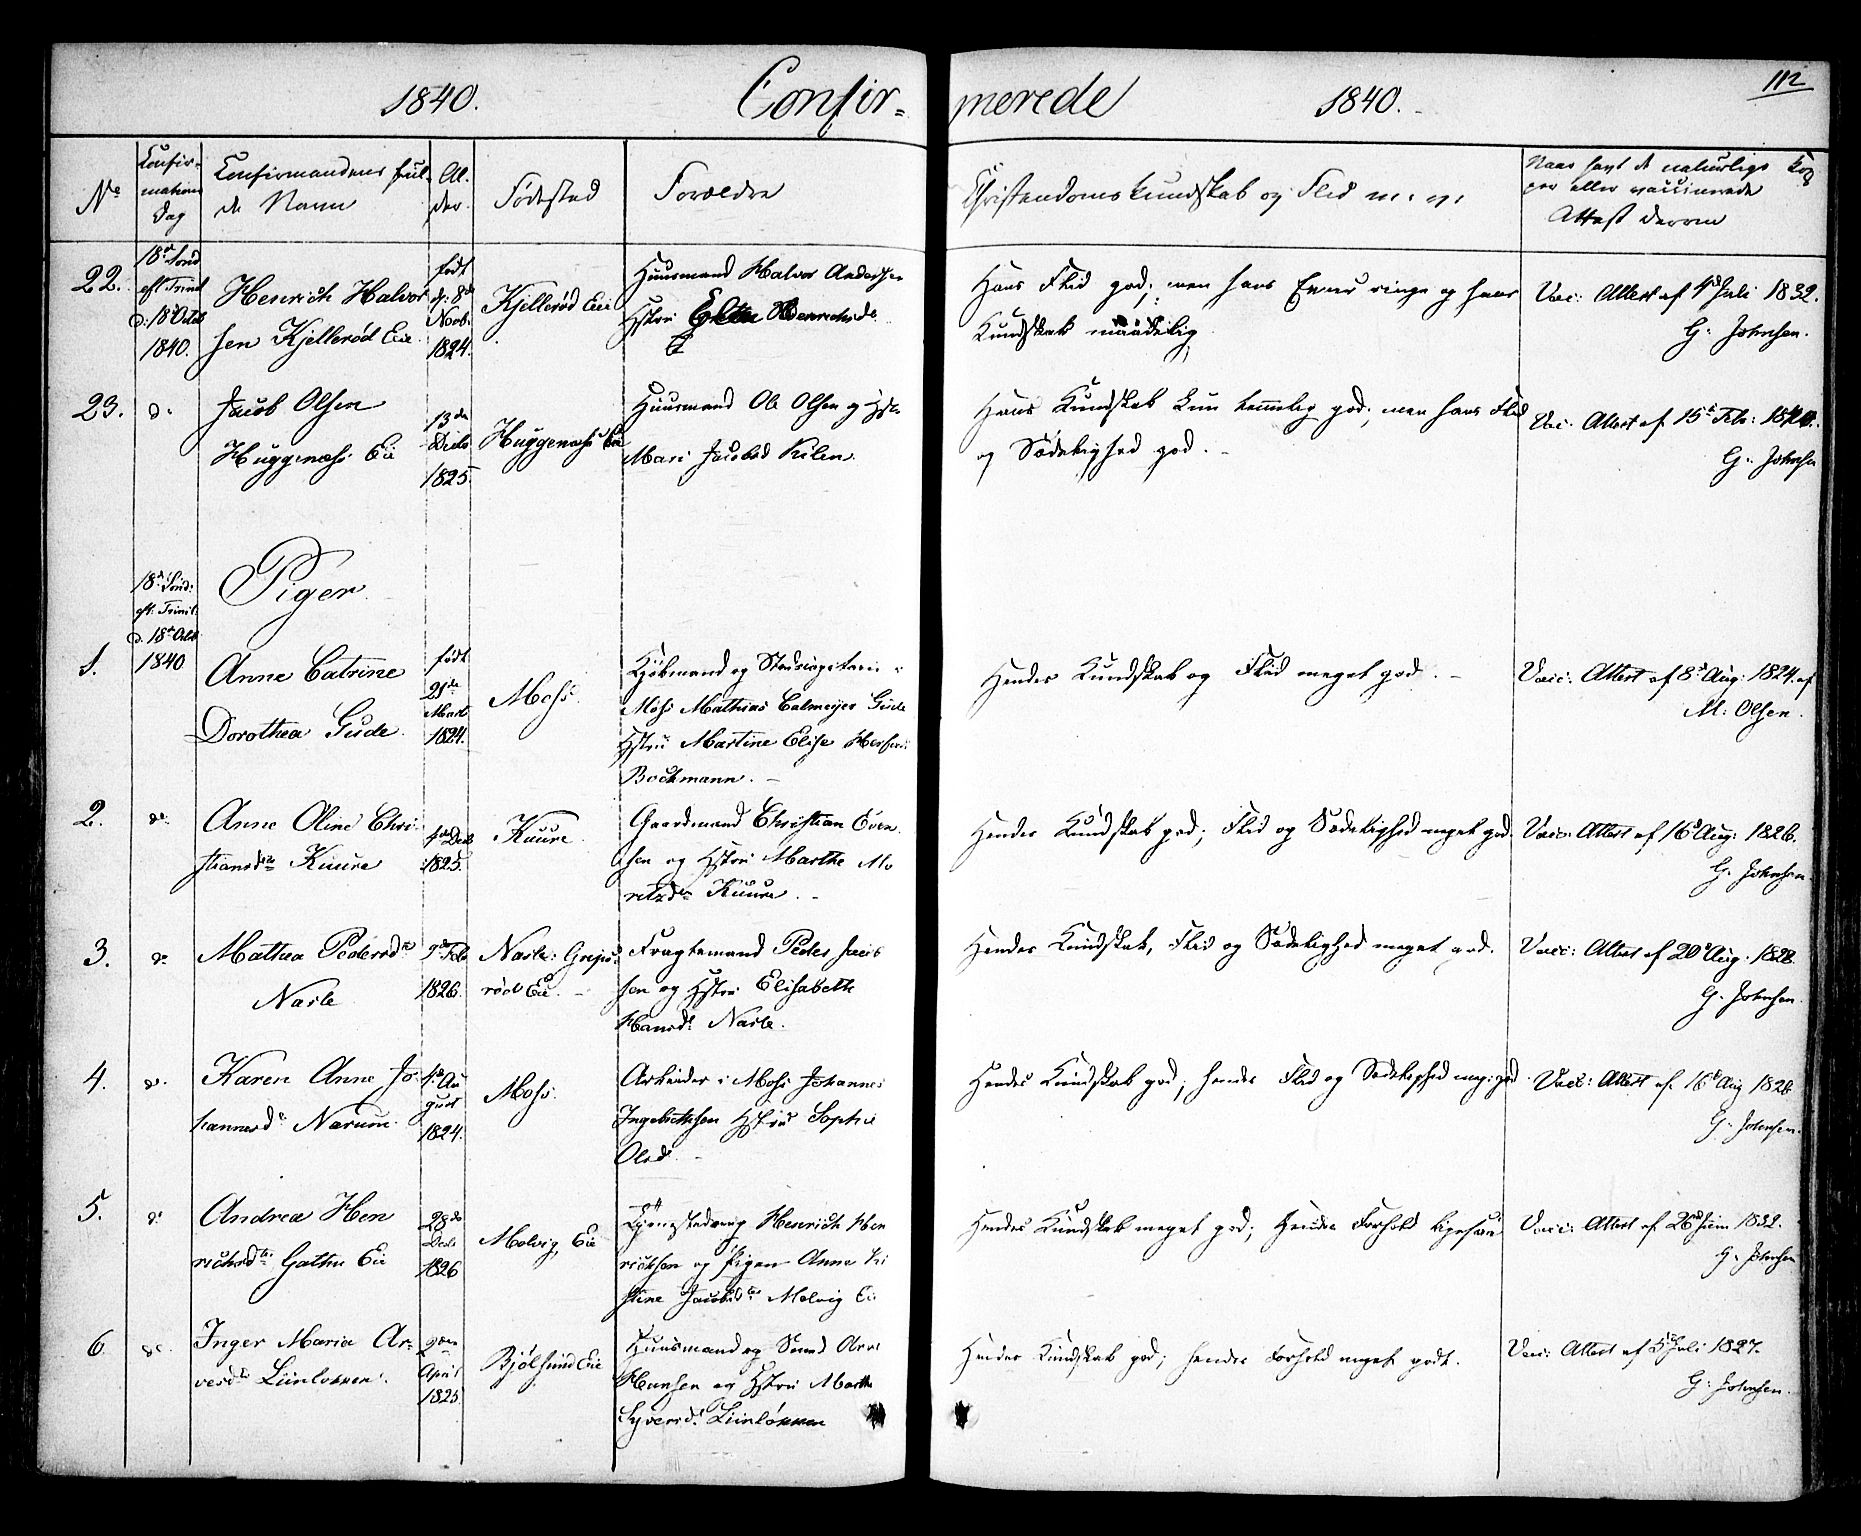 1840. Confir= merede 1840. 112
No Confir= mations Dag Confirmandens ful= de Navn Al= der. Fødested Forældre Christendomskundskab og Flid m. v. Naar havt de naturlige Kop per eller vaccinerede Attest derom
18de Sønd eft Trinit d: 18de Octob 1840.
22. Henrich Halvor
sen Kjellerød Eie
født d: 8de Novb: 1824.
Kjellerød Eie
Huusmand Halvor Andersen
Hstru Henrichsd.
Hans Flid god; men hans Evner ringe og hans
Kundskab maadelig
Vac: Attest af 4d Juli 1832.
G. Johnsen.
23. do Jacob Olsen
Huggenæhs Eie
13de Decb 1825.
Huggenæhs Eie
Huusmand Ole Olsen og Hst.
Mari Jacobsd Kilen.
Hans Kundskab kun temmelig god; men hans Flid
og Sædelighed god. -
Vac: Attest af 15d Feb:
G. Johnsen
Piger
18de Sønd: eft: Trinit: d. 18de Octob 1840
1. Anne Catrine
Dorothea Gude.
født 21de Marts 1824.
Mohs.
Kjøbmand og
Mohs Mathias Calmeyer Gude
Hstru Martine Elise
Bockmann. -
Hendes Kundskab og Flid meget god. -
Vacc: Attest af 8d Aug: 1824. af
M. Olsen.
2. do Anne Oline Chri
stiansdtr Kuure
4de Decb 1825.
Kuure.
Gaardmand Christian Even
sen og Hstru Marthe Mo
ritzdr Kuure. -
Hendes Kundskab god; Flid og Sædelighed meget god.
Vacc: Attest af 16d Aug: 1826.
G. Johnsen.
3. do Mathea Pedersdtr
Narle
9de Feb 1826.
Narle: Grejs=
rød Eie. -
Fragtemand Peder Jacob
sen og Hstru Elisabeth
Hansd. Narle.
Hendes Kundskab, Flid og Sædelighed meget god.
Vacc: Attest af 20d Aug. 1828.
G. Johnsen.
4. do Karen Anne Jo
hannesdr Narum.
4de Au gust 1824.
Mohs.
Arbeider i Mohs Johannes
Ingebrethsen Hstru Sophie
Olsd. -
Hendes Kundskab god; hendes Flid og Sædelighed meg: god.
Vacc: Attest af 16d Aug 1826
G. Johnsen.
5. do Andrea Hen
richsdtr Gathu Eie
28de Decb 1826
Molvig Eie
Tjenestedreng Henrich Hen
richsen og Pigen Anne Ki
stine Jacobsdtr Molvig Eie
Hendes Kundskab meget god; Hendes Forhold ligesaa
Vacc: Attest af 26d Juni 1832.
G. Johnsen
6. do Inger Maria Ar=
vesdtr Liinløkken.
April 1825
Bjølsund Eie
Huusmand og Smed Arve
Hansen og Hstru Marthe
Syversd. Liinløkken
Hendes Kundskab god; hendes Forhold meget godt.
Vac: Attest af 5d Juli 1827.
G. Johnsen.